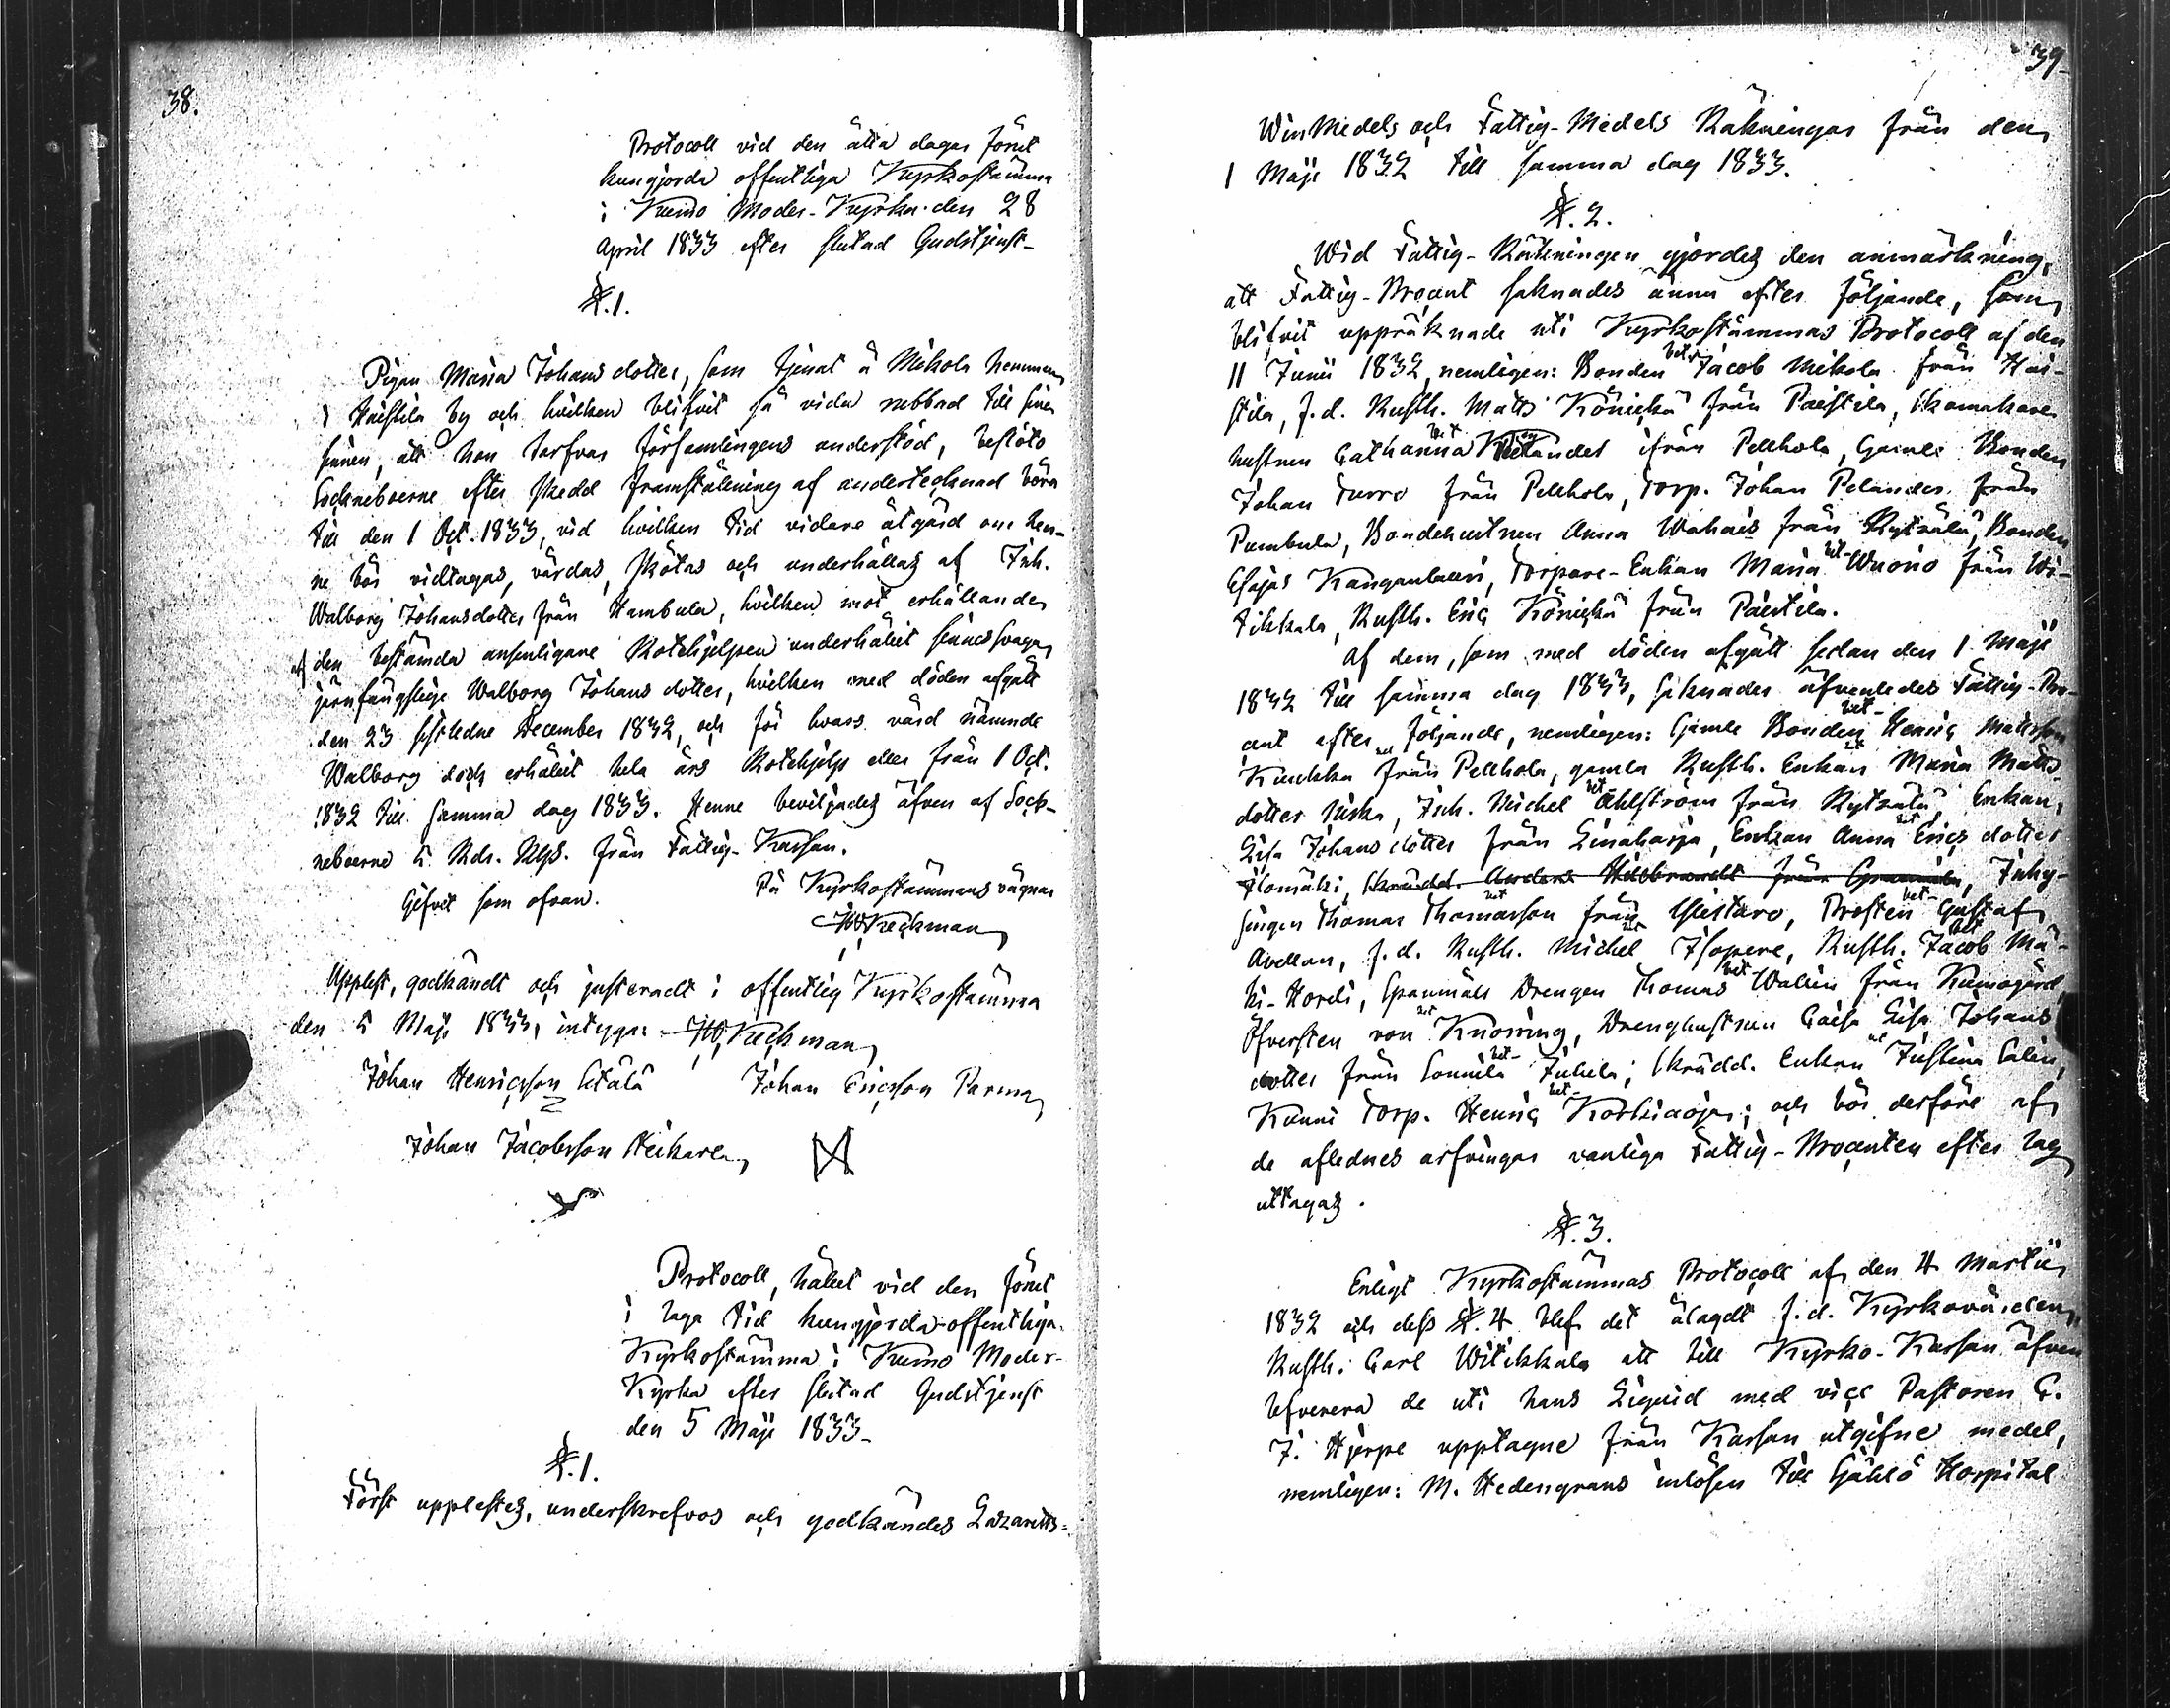 38.
Protocoll vid den åtta dagar förut
kungjorda offentliga Kyrkostämma
i Kumo Moder-Kyrka den 28
April 1833 efter slutad Gudstjenst_
§.1.
Pigan Maria Johansdotter, som tjenat å Mikola hemman
i Haistila by och hvilken blifvit så vida rubbad till sina
sinnen, att hon tarfvar församlingens understöd, beslöto
Sockneboerne efter skedd framställning af undertecknad böra
till den 1 Oct. 1833, vid hvilken tid vidare åtgärd om hen-
ne bör vidtagas, vårdas, skötas och underhållas af Inh.
Walborg Johansdotter från Hambula, hvilken mot erhållande
af den bestämda ansenligare Rotehjelpen underhållit sinnessvaga
jernfängslige Walborg Johansdotter, hvilken med döden afgått
den 23 sistledne December 1832, och för hvars vård nämnde
Walborg dock erhållit hela års Rotehjelp eller från 1 Oct.
1832 till samma dag 1833. Henne beviljades äfven af Sock-
neboerne 5 Rdr. Rgs. från Fattig-Kassan.
Gifvet som ofvan.
På Kyrkostämmans vägnar
Upplest, godkändt och justeradt i offentlig Kyrkostämma
den 5 Maji 1833, intyga:
Johan Henricsson
Johan Ericsson
Johan Jacobsson Heikare
Protocoll, hållit vid den förut
i laga tid kungjorda offentliga
Kyrkostämma i Kumo Moder-
Kyrka efter slutad Gudstjenst
den 5 Maji 1833_
§.1.
Först upplestes, underskrefvos och godkändes Lazaretts-
39_
WinMedels och Fattig-Medels Räkningar från den
1 Maji 1832 till samma dag 1833.
§.2.
Wid Fattig-Räkningen gjordes den anmärkning,
att Fattig-Procent saknades ännu efter följande, som
blifvit uppräknade uti Kyrkostämmas Protocoll af den
11 Junii 1832, nemligen: Bonden bet. Jacob Mikola från Hai-
stila, f.d. Rusth. Matts Könickä från Paistila, Skomakare
hustrun Catharina bet. från Pellhola, Gamle Bonden
Johan Turro från Pellhola, Torp. Johan Pelander från
Pumbula, Bondehustrun Anna Wahais från Kytzälä, Bonden
Esajas Kangantaeri, Torpare-Enkan Maria bet. Wuorio från Wi-
tikkala, Rusth. Eric Könickä från Paistila.
Af dem, som med döden afgått sedan den 1 Maji
1832 till samma dag 1833, saknades äfvenledes Fattig-Pro-
cent efter följande, nemligen: Gamle Bonden bet- Henric Mattsson
från Pellhola, gamla Rusth. Enkan bet Maria Matts-
dotter Inh. Michel bet Ahlström från Kytzälä, Enkan
Lisa Johansdotter från Linaharja, Enkan Anna bet Ericsdotter
Ilomäki, Skrädd. Anders Hildbrandt från Inhy-
singen Thomas Thomasson bet från Ylistaro, Prosten bet- Gustaf
Avellan, f.d. Rusth. Michel bet Isopere, Rusth. Jacob bet Mä-
ki-Hordi, Spannmåls Drengen Thomas bet- Wallin från Kumogård,
Öfversten von bet Knorring, Drenghustrun Caisa Lisa Johans
dotter från Sonnila bet- Juhela; Skrädd. Enkan bet Justina Calin,
Kanni Torp. Henric bet Korkiaoja; och bör derföre af
de aflednes arfvingar vanliga Fattig-Procenten efter lag
uttagas.
§.3.
Enligt Kyrkostämmas Protocoll af den 4 Martii
1832 och dess §.4 blef det ålagdt f.d. Kyrkovärden,
Rusth. Carl Witikkala att till Kyrko-Kassan äfven
lefverera de uti hans Liquid med vice Pastoren C.
J. Hjerpe upptagne från Kassan utgifne medel,
nemligen: M. Hedengrans inlösen till Själö Hospital